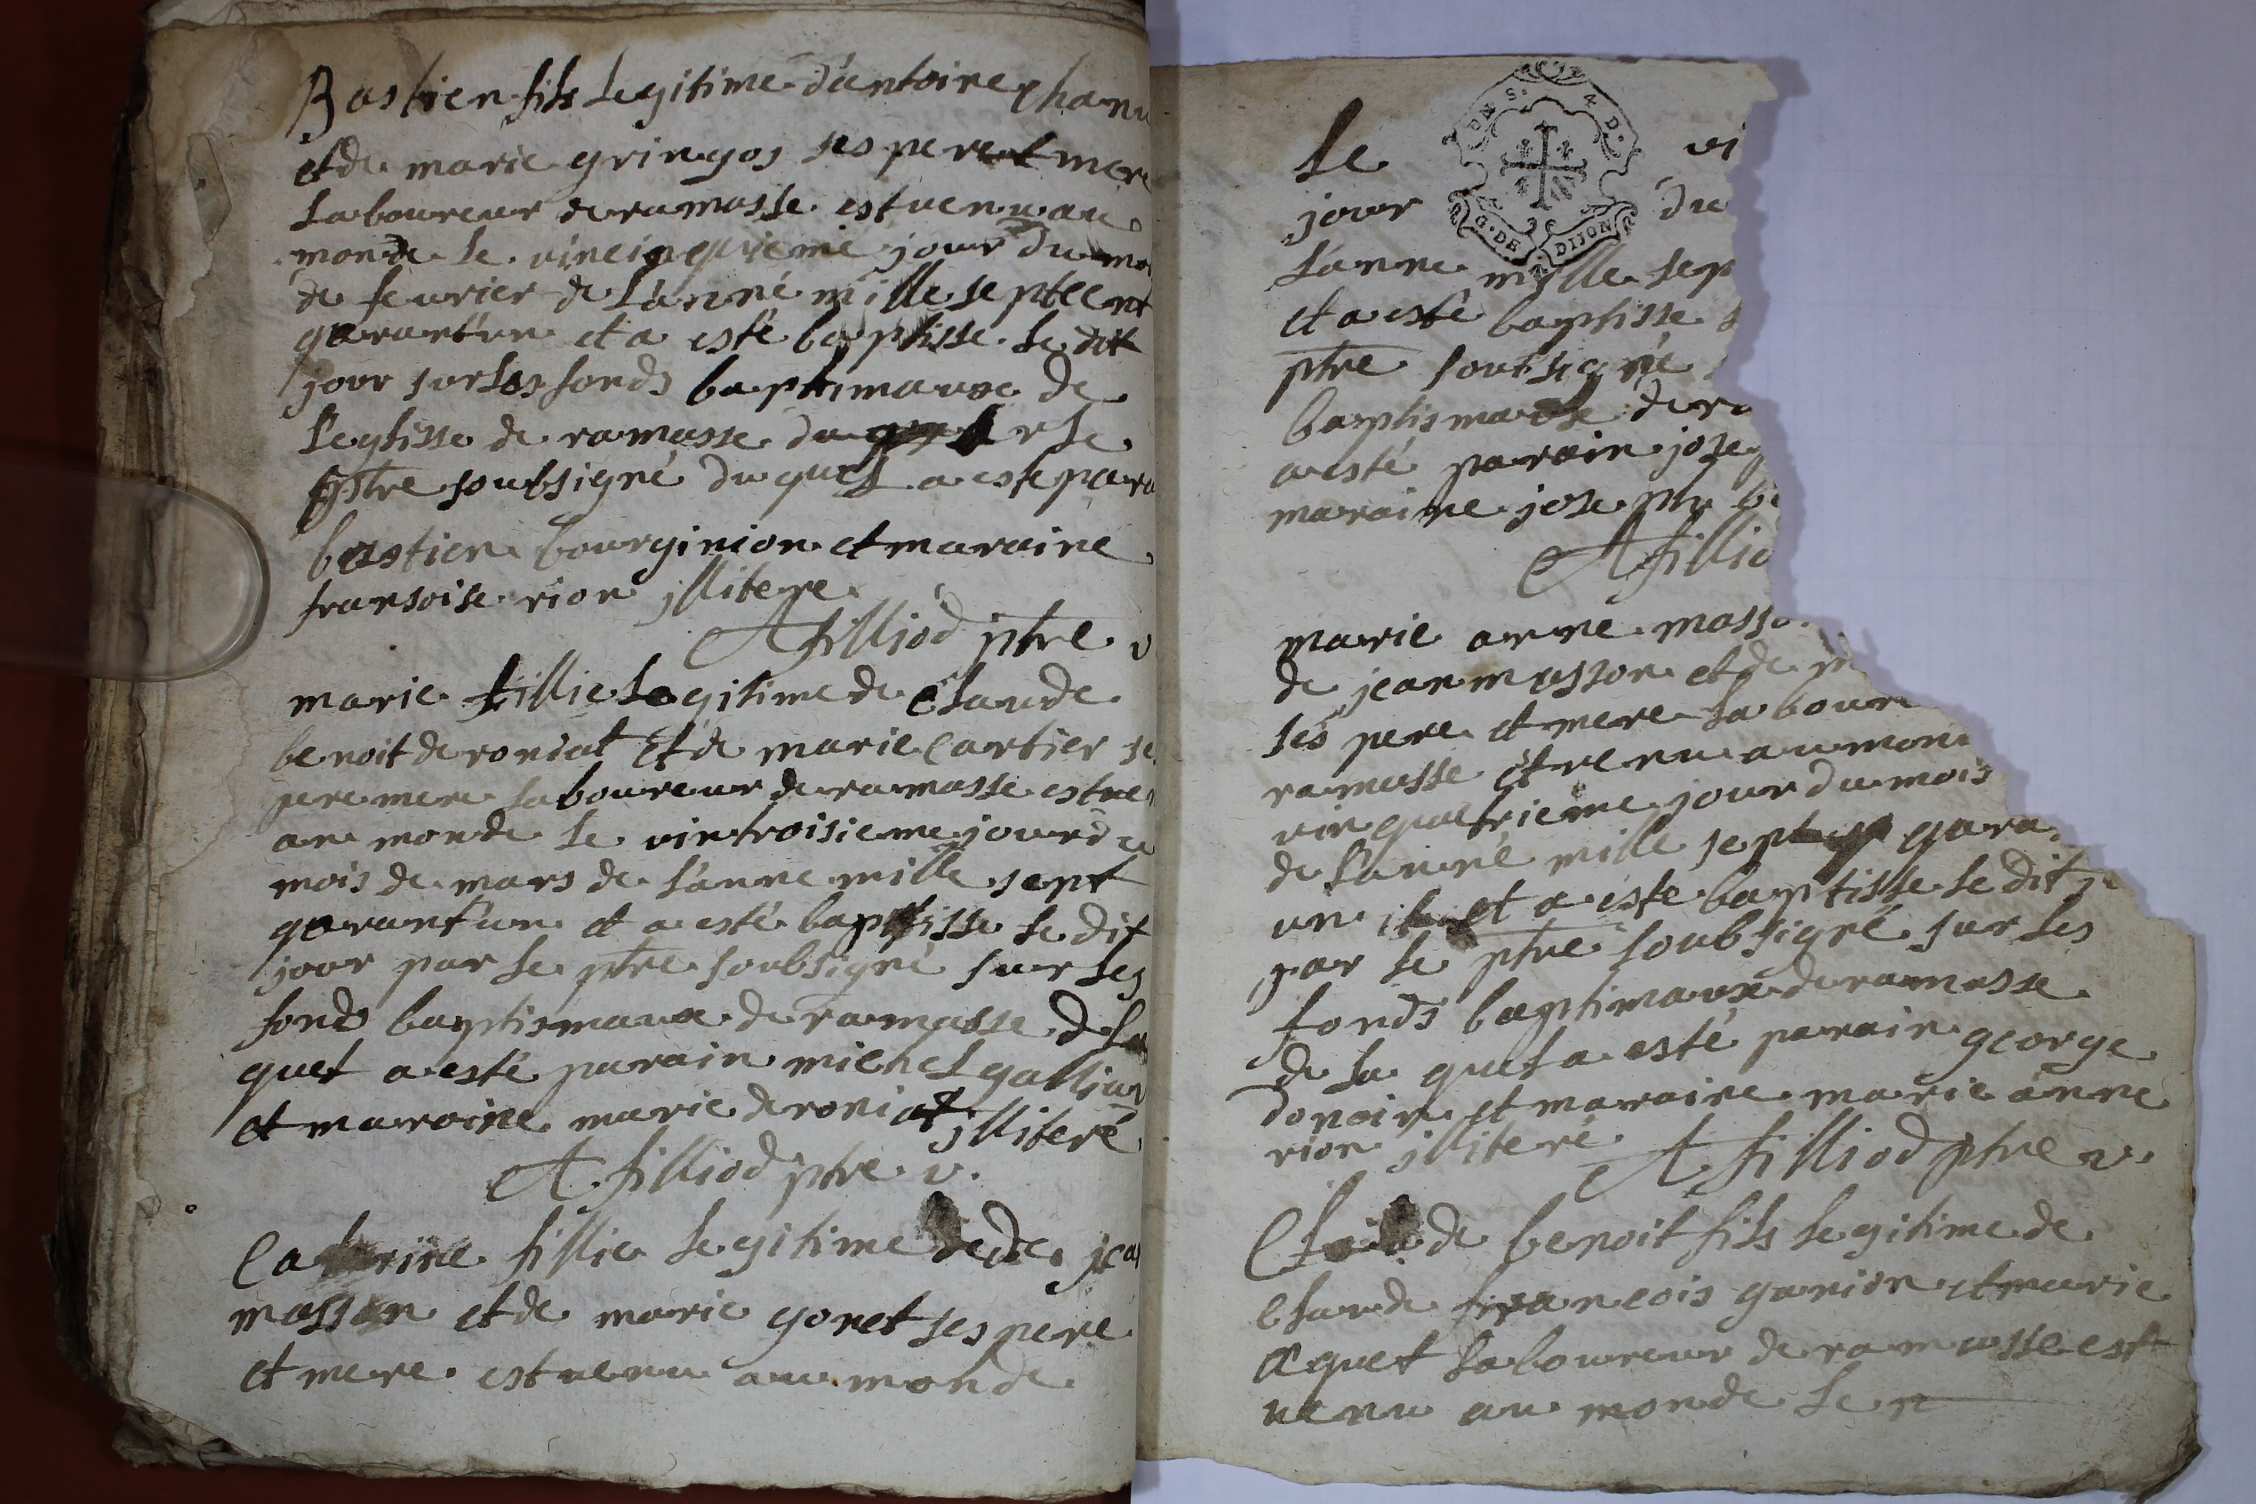 Bastien fils legitime d'antoine
et de marie gringoz ses pere et mere
laboureur de ramasse est venu au
monde le jour du
de feurier de l'anné mille septcent
garant'un et a esté baptisse le dit
jour sur les fonds baptimaux de
l'eglisse de ramasse le
ptre soubsigné du quel a este
bastien bourginion et maraine
fransoise rion illitere
A filliod ptre v
marie fillie legitime de Claude
benoit deroniat et de marie Cartier
pere mere laboureur de ramasse
au monde le vintroisieme jour
mois de mars de l'anne mille sept
garant'un et a esté baptisse le dit
jour par le ptre soubsigné sur les
fonds baptismaux de ramasse
quel a esté parain michel
et maraine marie deroniat illiteré
A. filliod ptre. v.
Caterine fillie legitime de
masson et de marie goret ses pere
et mere est venu au monde
le
jour du
DIJON
l'anne mille
et a esté baptisse
ptre soubsigné
baptismaux
a esté parain
maraine
A
marie anne
de jean masson et de
ses pere et mere
ramasse et venu au
vin quatrieme jour du mois
de l'anné mille
un et a esté baptisse le dit
par le ptre soubsigné sur les
fonds baptimaux de ramasse
de la quel a esté parain george
donoin et maraine marie anne
rion illiteré A filliod ptre v.
Claude benoit fils legitime de
Claude francois garion et marie
laboureur de ramasse est
venu au monde le